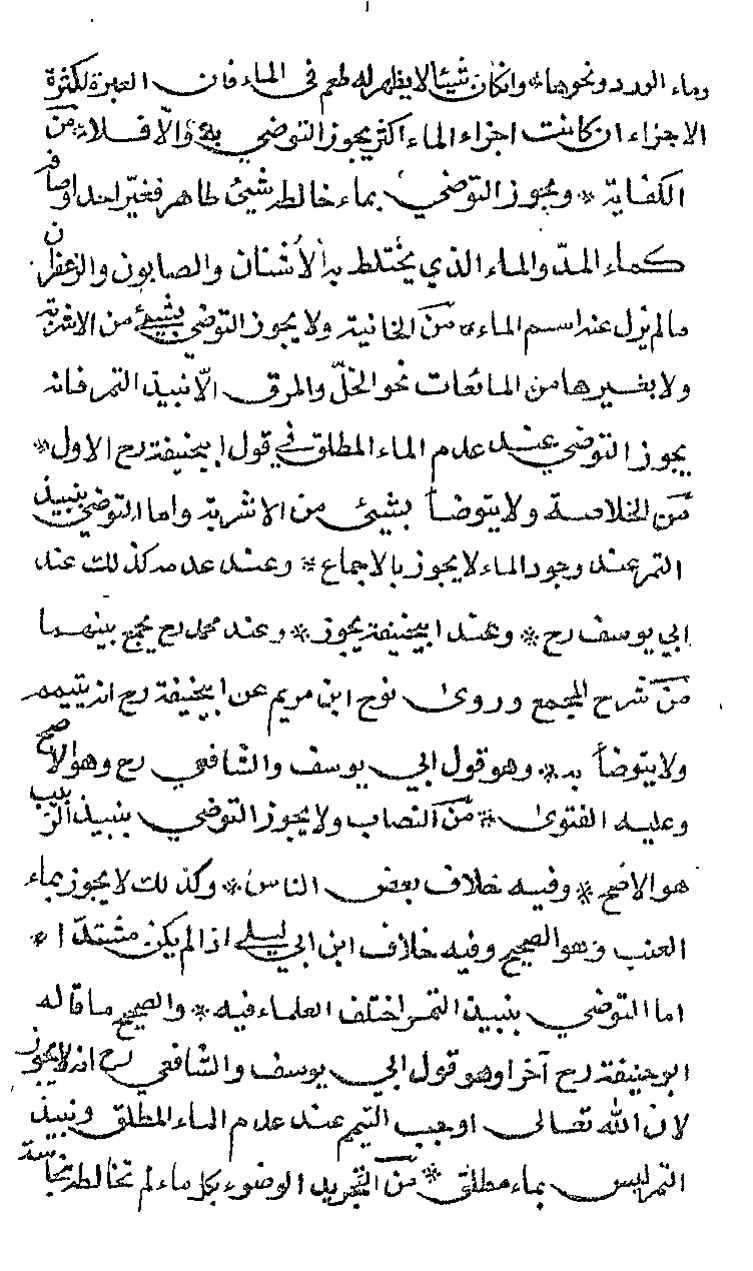 وماء الورد ونحوها * وان كان شيئا لا يظهر له طعم في الماء فان العبرة لكثرة
الاجزاء ان كانت اجزاء الماء اكثر يجوز التوضي به والّا فلا * من
الكفاية * ويجوز التوضي بماء خالطه شيئ طاهر فغيّر احد اوصافه
كماء المدّ والماء الذي يختلط به الأشنان والصابون والزعفران
ما لم يزل عنه اسم الماء * من الخانية ولا يجوز التوضي بشيئ من الاشربة
ولا بغيرها من المائعات نحو الخلّ والمرق الّا نبيذ التمر فانه
يجوز التوضي عند عدم الماء المطلق في قول ابيحنيفة رح الاول *
من الخلاصة ولا يتوضأ بشيئ من الاشربة واما التوضي بنبيذ
التمر عند وجود الماء لا يجوز بالاجماع * وعند عدمه كذلك عند
ابي يوسف رح * وعند ابيحنيفة يجوز * وعند محمد رح يجمع بينهما
من شرح المجمع وروى نوح ابن مريم عن ابيحنيفة رح انه يتيمم
ولا يتوضأ به * وهو قول ابي يوسف والشافعي رح وهو الاصح
وعليه الفتوى * من النصاب ولا يجوز التوضي بنبيذ الزبيب
هو الاصح * وفيه خلاف بعض الناس * وكذلك لا يجوز بماء
العنب وهو الصحيح وفيه خلاف ابن ابي ليلى اذا لم يكن مشتدّا *
اما التوضي بنبيذ التمر اختلف العلماء فيه * والصحيح ما قاله
ابو حنيفة رح آخرا وهو قول ابي يوسف والشافعي رح انه لا يجوز
لان الله تعالى اوجب التيمم عند عدم الماء المطلق ونبيذ
التمر ليس بماء مطلق * من التجريد الوضوء بكل ماء لم تخالطه نجاسة